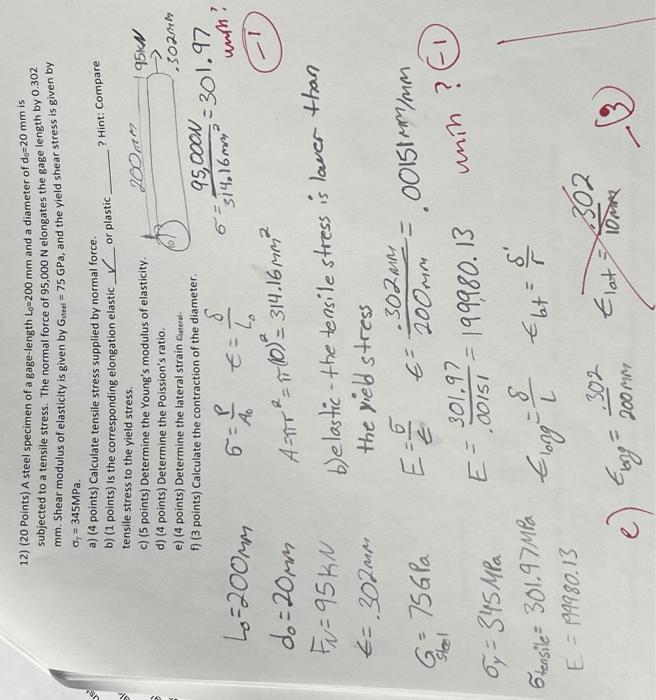 12) (20 Points) A steel specimen of a gage-length L₀=200 mm and a diameter of d₀=20 mm is
subjected to a tensile stress. The normal force of 95,000 N elongates the gage length by 0.302
mm. Shear modulus of elasticity is given by Gsteel = 75 GPa, and the yield shear stress is given by
σᵧ = 345MPa.
a) (4 points) Calculate tensile stress supplied by normal force.
b) (1 points) Is the corresponding elongation elastic ✓ or plastic ______? Hint: Compare
tensile stress to the yield stress.
c) (5 points) Determine the Young's modulus of elasticity.
d) (4 points) Determine the Poission's ratio.
e) (4 points) Determine the lateral strain εlateral.
f) (3 points) Calculate the contraction of the diameter.
200mm
95kN
.302mm
L₀=200mm
d₀=20mm
F_N=95KN
ε=.302mm
G steel = 75GPa
σᵧ=345MPa
σtensile=301.97MPa
E=199980.13
σ=P/A₀ ε=δ/L₀
σ= 95,000N/314.16mm² = 301.97
unih?
-1
A=πr²=π(10)²=314.16mm²
b) elastic - the tensile stress is lower than
the yield stress
E=σ/ε ε= .302mm/200mm = .00151mm/mm
E= 301.97/.00151 = 199,980.13
unih? -1
εlong=δ/L εlat=δ'/r
e) εlong= .302/200mm εlat= .302/10mm
-3